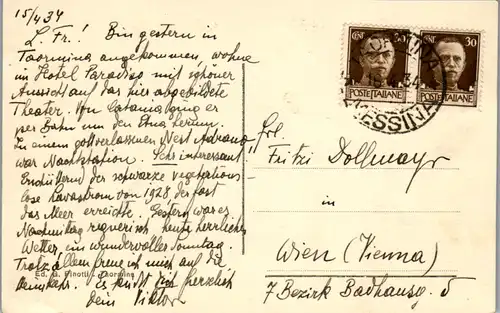 15/4 34
L. Fr.! Bin gestern in
Taormina angekommen, wohne
im Hotel Paradiso mit schöner
Aussicht auf das hier abgebildete
Theater. Von Catania ging es
per Bahn um den Etna herum.
In einem gottverlassenen Nest Adrano
war Nachtstation. Sehr interessant
Erschütternd der schwarze vegetations-
lose Lavastrom von 1928, der fast
das Meer erreichte. Gestern war es
Nachmittag regnerisch heute herrliches
Wetter, ein wundervoller Sonntag.
Trotz allem freue ich mich auf die
Heimkehr. Es küßt herzlich
Dein Viktor
Taormina
CENT. 30
POSTE ITALIANE
30
POSTE ITALIANE
MESSINA
Frl.
Fritzi Dollmayr
in
Wien (Vienna)
7 Bezirk Badhausg. 5